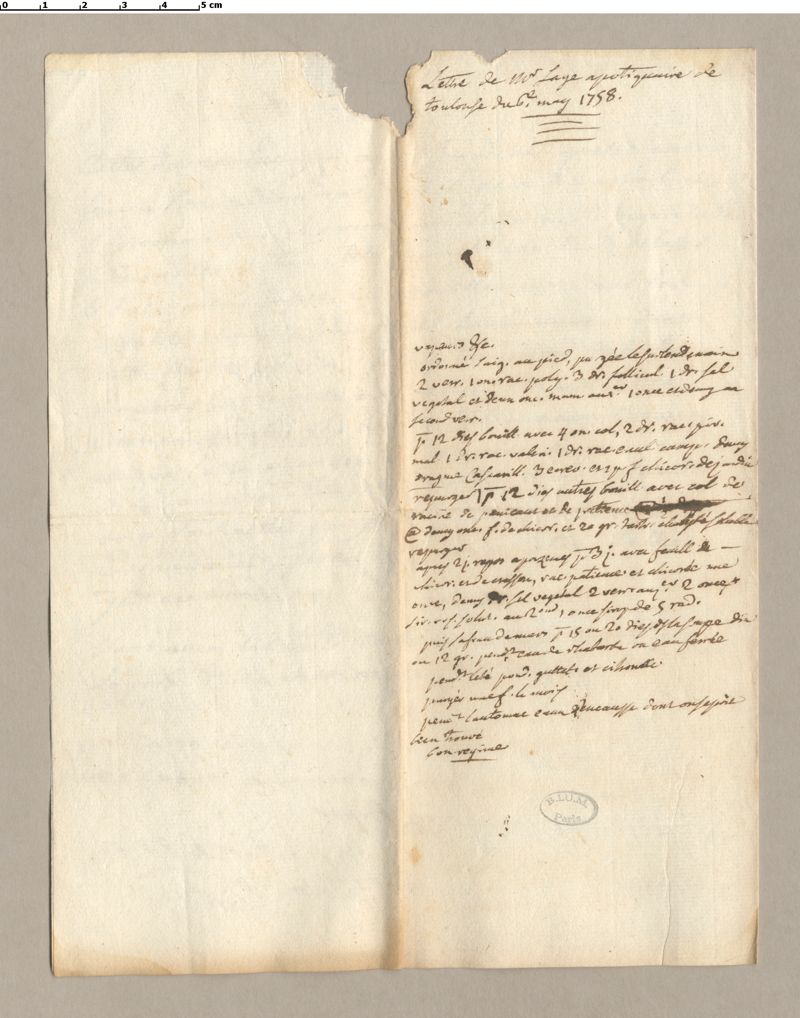 0 1 2 3 4 5 cm
Lettre de Mr Laye apotiquaire de
toulouse du 6e may 1758.
ordonné saig. au pied, purgée le surlendemain
2 verr. 1 on. rac. poly. 3 dr. follicul. 1 dr. sel
vegetal et deux onc. mann au 1er 1 once et demy au
second verr.
pr 12 dies bouill. avec 4 on. col, 2 dr. rac. piv.
mal. 1 dr. rac. valeri. 1 dr. rac. enul camp. demy
dragme Cascarill. 3 ecrev. et 1 p. f chicor. de jardin
repurger pr 12 dies autres bouill. avec col de
racine de panicaut et de patience
@ demy onc. f. de chicor. et 20 gr. tartr. soluble
repurger
apres 2 j. repos apozemes pr 3 j. avec feuill de
chicor. et de cresson, rac patience et chicorée une
once, demy dr. sel vegetal 2 verr au 1er 2 onces
sir. ros. solut. au 2ond 1 once sirop de 5 rad.
puis safran de mars pr 15 ou 20 dies ds la soupe dix
ou 12 gr. pendt eau de rhubarbe ou eau ferrée
pendt l'été poud. guttet. et
purgée une f. le mois
pent l'automne eaux d'encausse dont on s'est
bien trouvé
bon regime
B.I.U.M.
Paris